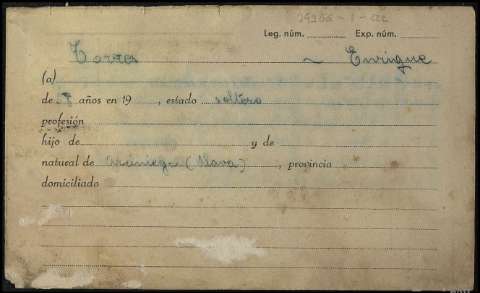 Leg. núm. Exp. núm.
Torres ~ Enrique
(a)
de años en 19 , estado soltero
profesión
hijo de y de
natural de Arciniega (Alava) , provincia
domiciliado